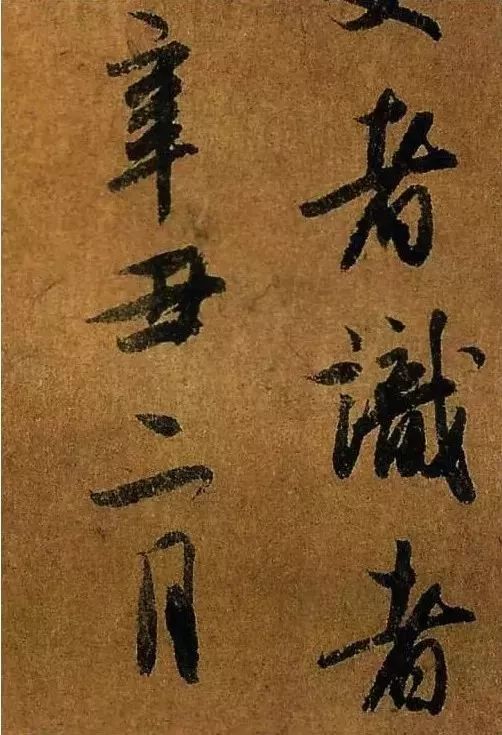 者識者
辛丑二月